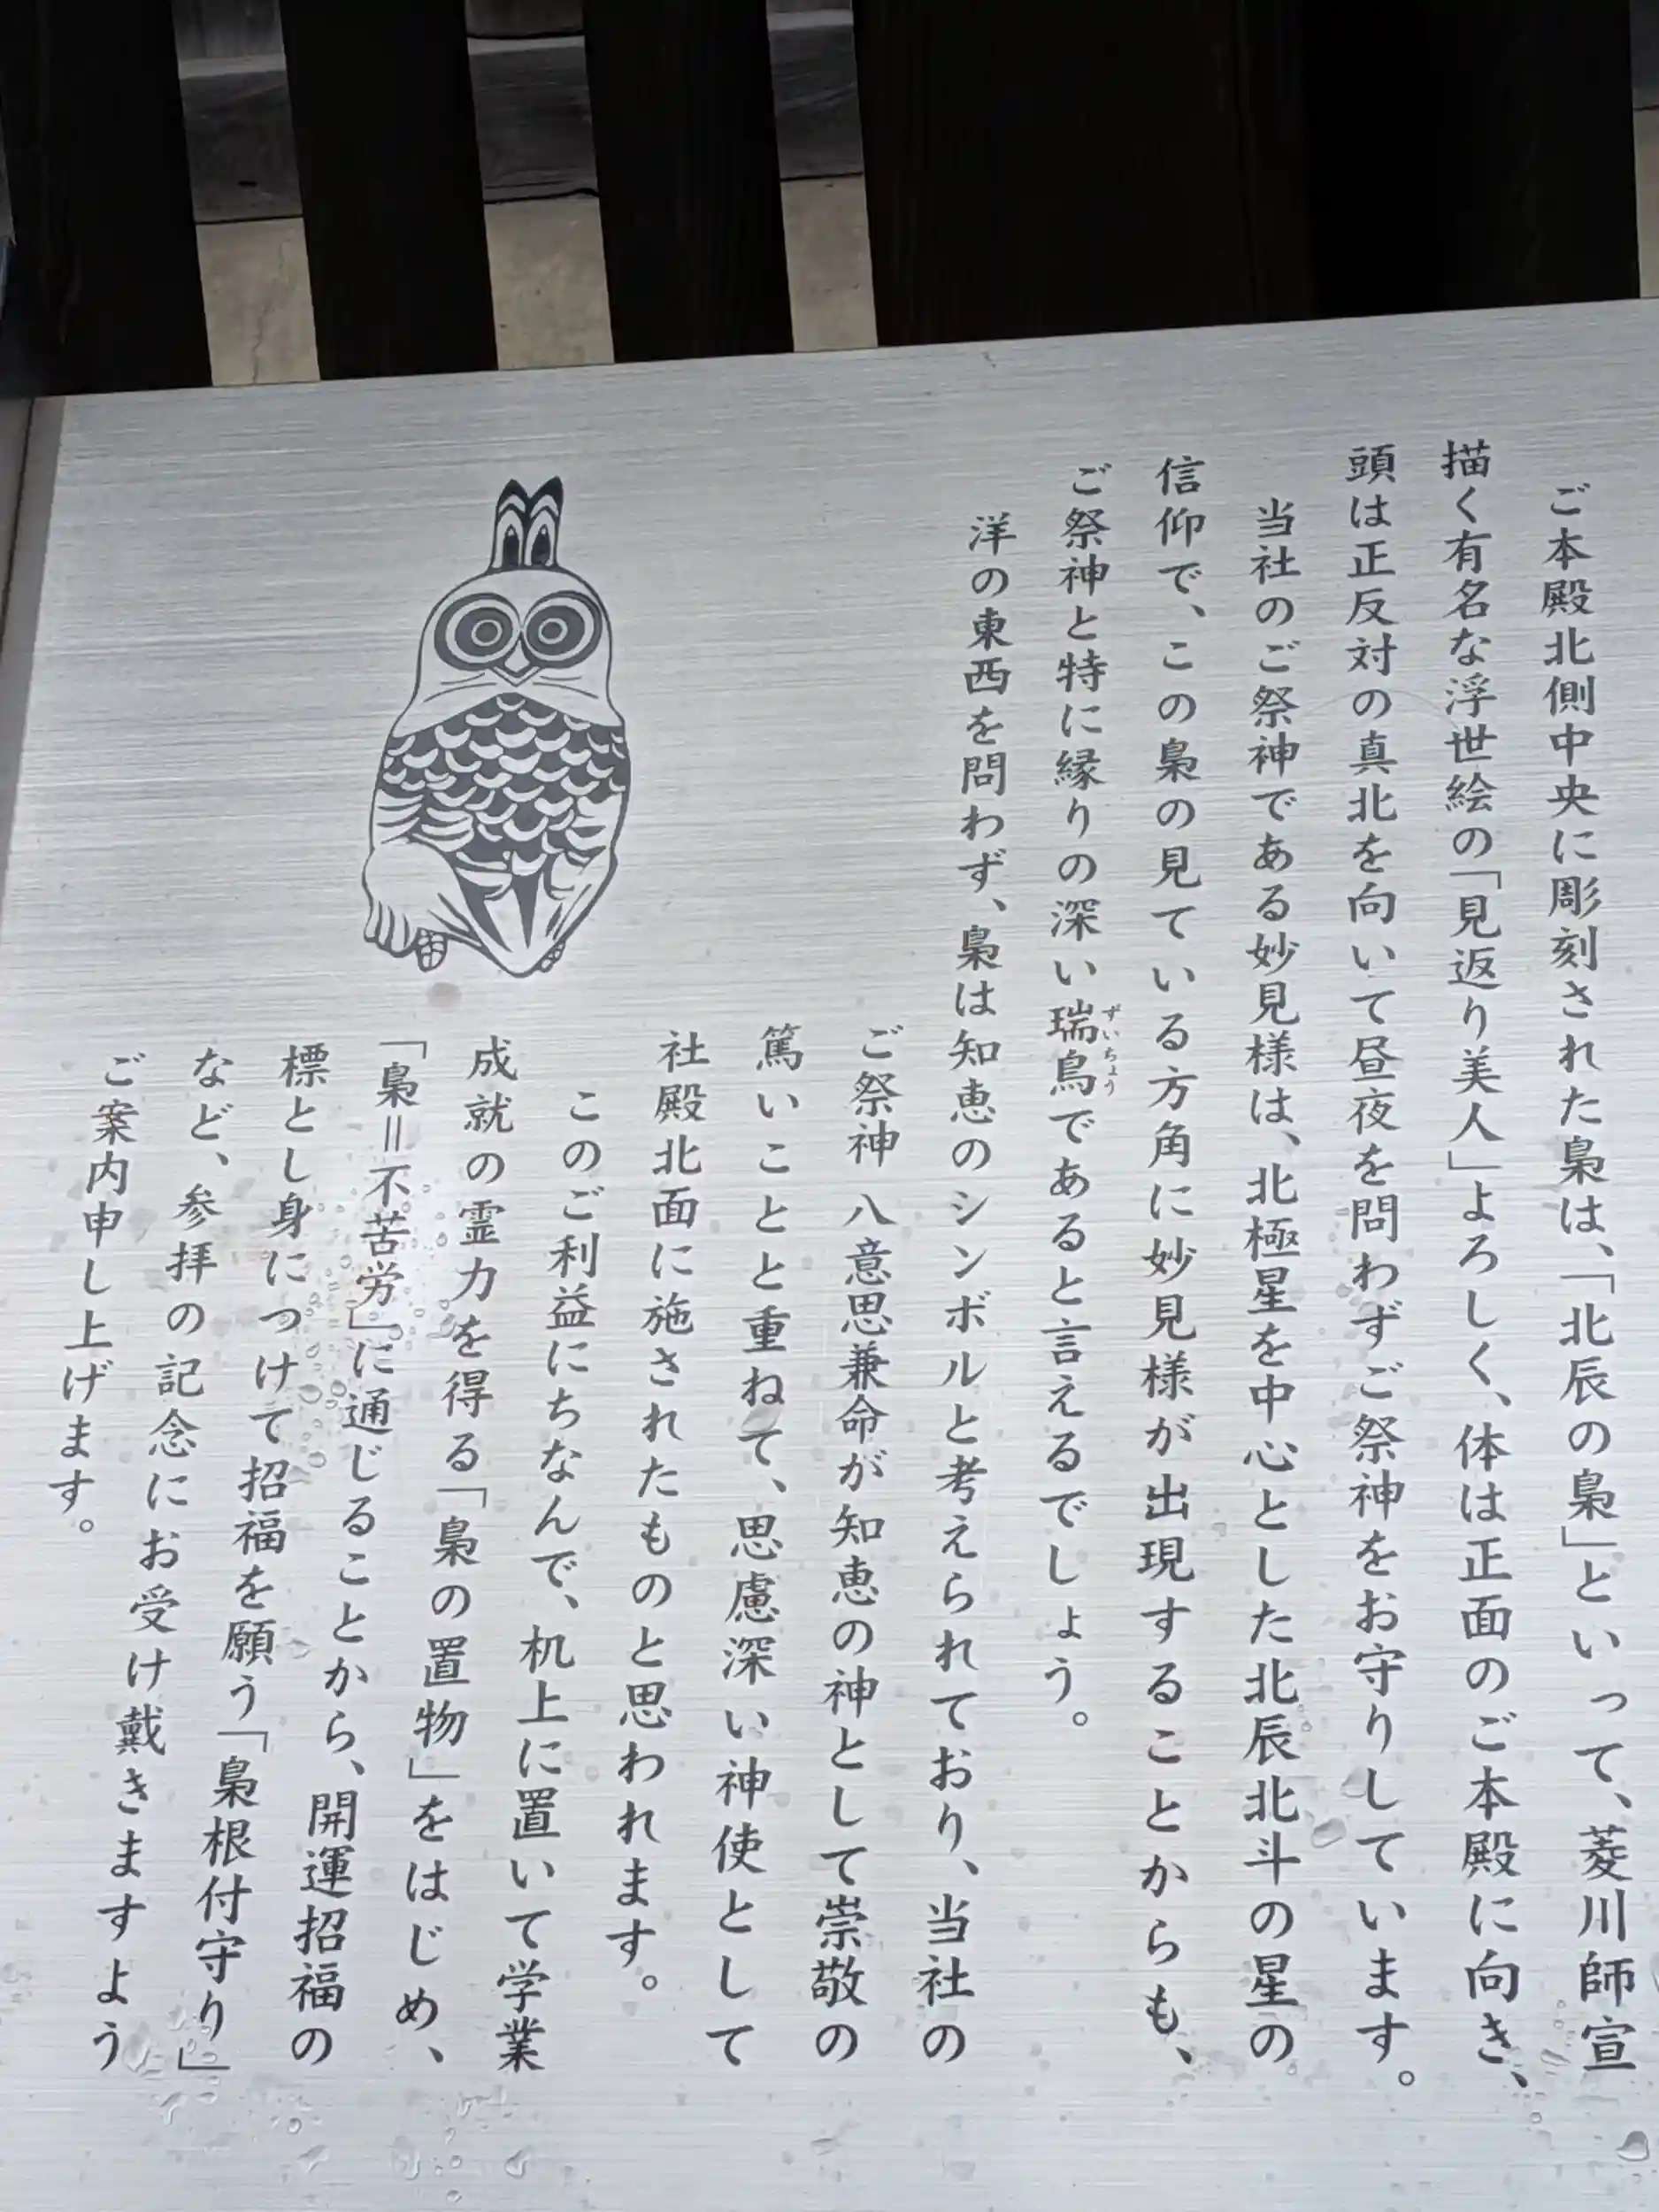 ご本殿北側中央に彫刻された梟は、「北辰の梟」といって、菱川師宣
描く有名な浮世絵の「見返り美人」よろしく、体は正面のご本殿に向き、
頭は正反対の真北を向いて昼夜を問わずご祭神をお守りしています。
当社のご祭神である妙見様は、北極星を中心とした北辰北斗の星の
信仰で、この梟の見ている方角に妙見様が出現することからも、
ご祭神と特に縁りの深い瑞鳥であると言えるでしょう。
ずいちょう
洋の東西を問わず、梟は知恵のシンボルと考えられており、当社の
ご祭神 八意思兼命が知恵の神として崇敬の
篤いことと重ねて、思慮深い神使として
社殿北面に施されたものと思われます。
このご利益にちなんで、机上に置いて学業
成就の霊力を得る「梟の置物」をはじめ、
「梟=不苦労」に通じることから、開運招福の
標とし身につけて招福を願う「梟根付守り」
など、参拝の記念にお受け戴きますよう
ご案内申し上げます。